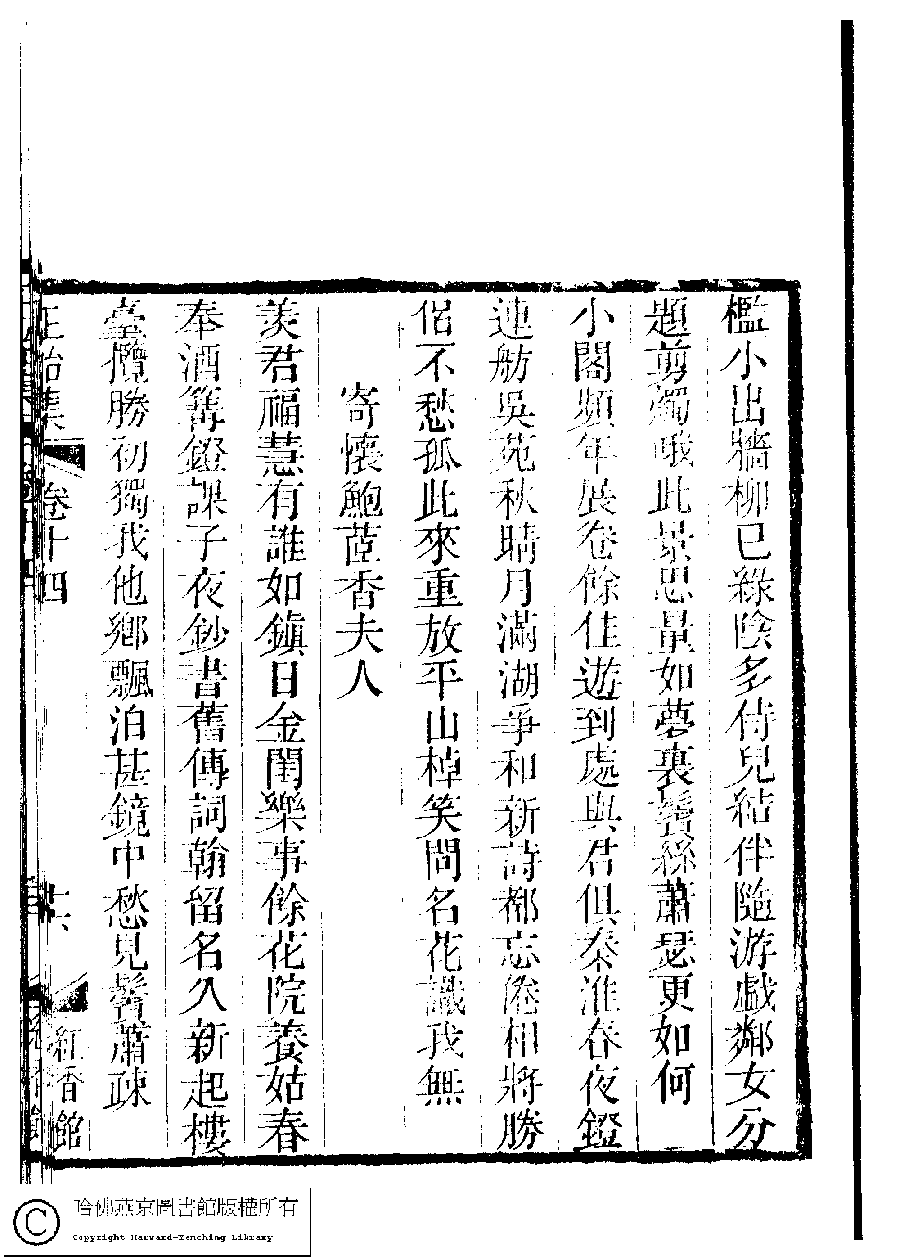 檻小出牆柳已綠陰多侍兒結伴隨游戲鄰女分
題剪燭哦此景思量如夢裏鬢絲蕭瑟更如何
小閣頻年展卷餘佳遊到處與君俱秦淮春夜鐙
連舫吳苑秋晴月滿湖爭和新詩都忘倦相將勝
侶不愁孤此來重放平山棹笑問名花識我無
寄懷鮑茝香夫人
羨君福慧有誰如鎮日金閨樂事餘花院養姑春
奉酒篝鐙課子夜鈔書舊傳詞翰留名久新起樓
臺攬勝初獨我他鄉飄泊甚鏡中愁見鬢蕭疎
正始集
卷十四
十六
紅香館
哈佛燕京圖書館版權所有
Copyright Harvard-Yenching Library